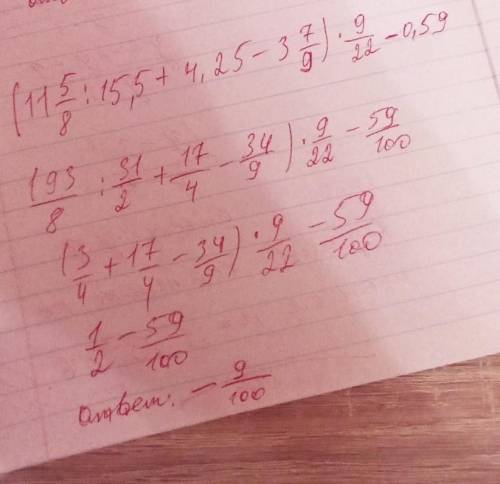 (11 5/8 : 15,5 + 4,25 - 3 7/9) · 9/22 - 0,59
(93/8 : 31/2 + 17/4 - 34/9) · 9/22 - 59/100
(3/4 + 17/4 - 34/9) · 9/22 - 59/100
1/2 - 59/100
ответ: - 9/100